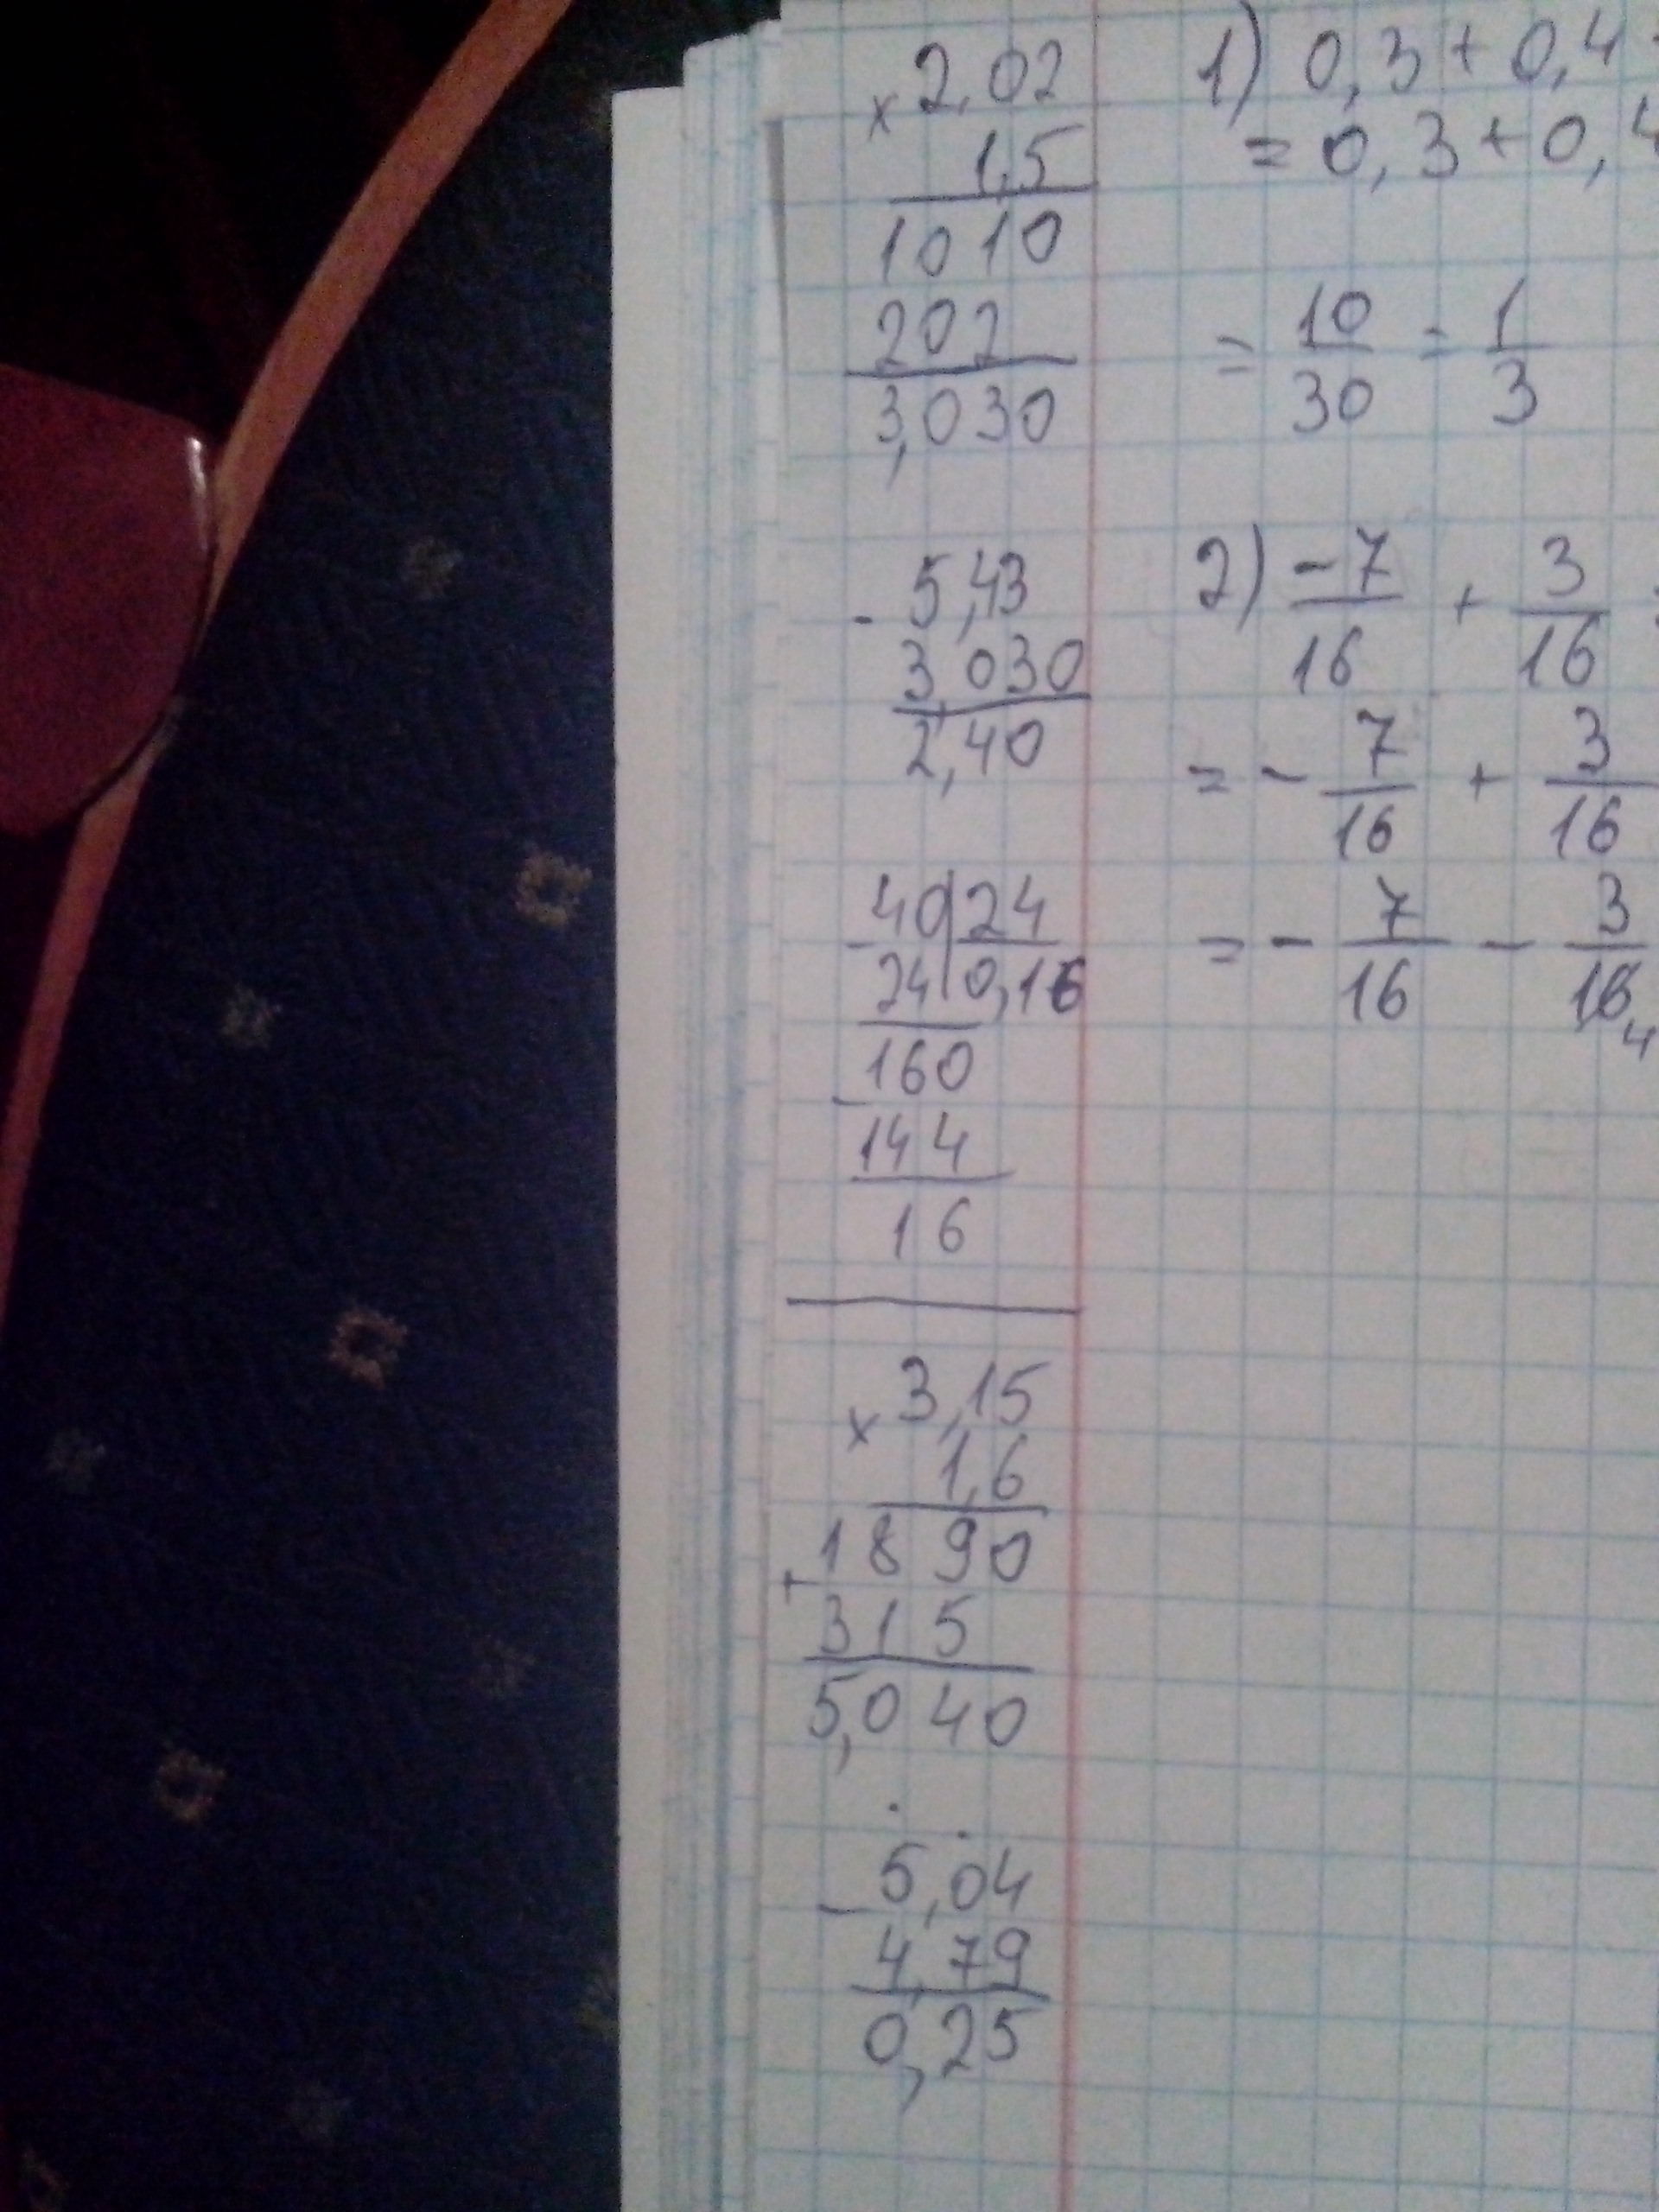 × 2,02
1,5
1010
202
3,030
- 5,43
3,030
2,40
- 40 | 24
24 | 0,16
160
- 144
16
× 3,15
1,6
1890
+ 315
5,040
- 5,04
4,79
0,25
1) 0,3 + 0,4
= 0,3 + 0,4
= 10/30 = 1/3
2) -7/16 + 3/16
= - 7/16 + 3/16
= - 7/16 - 3/16 4